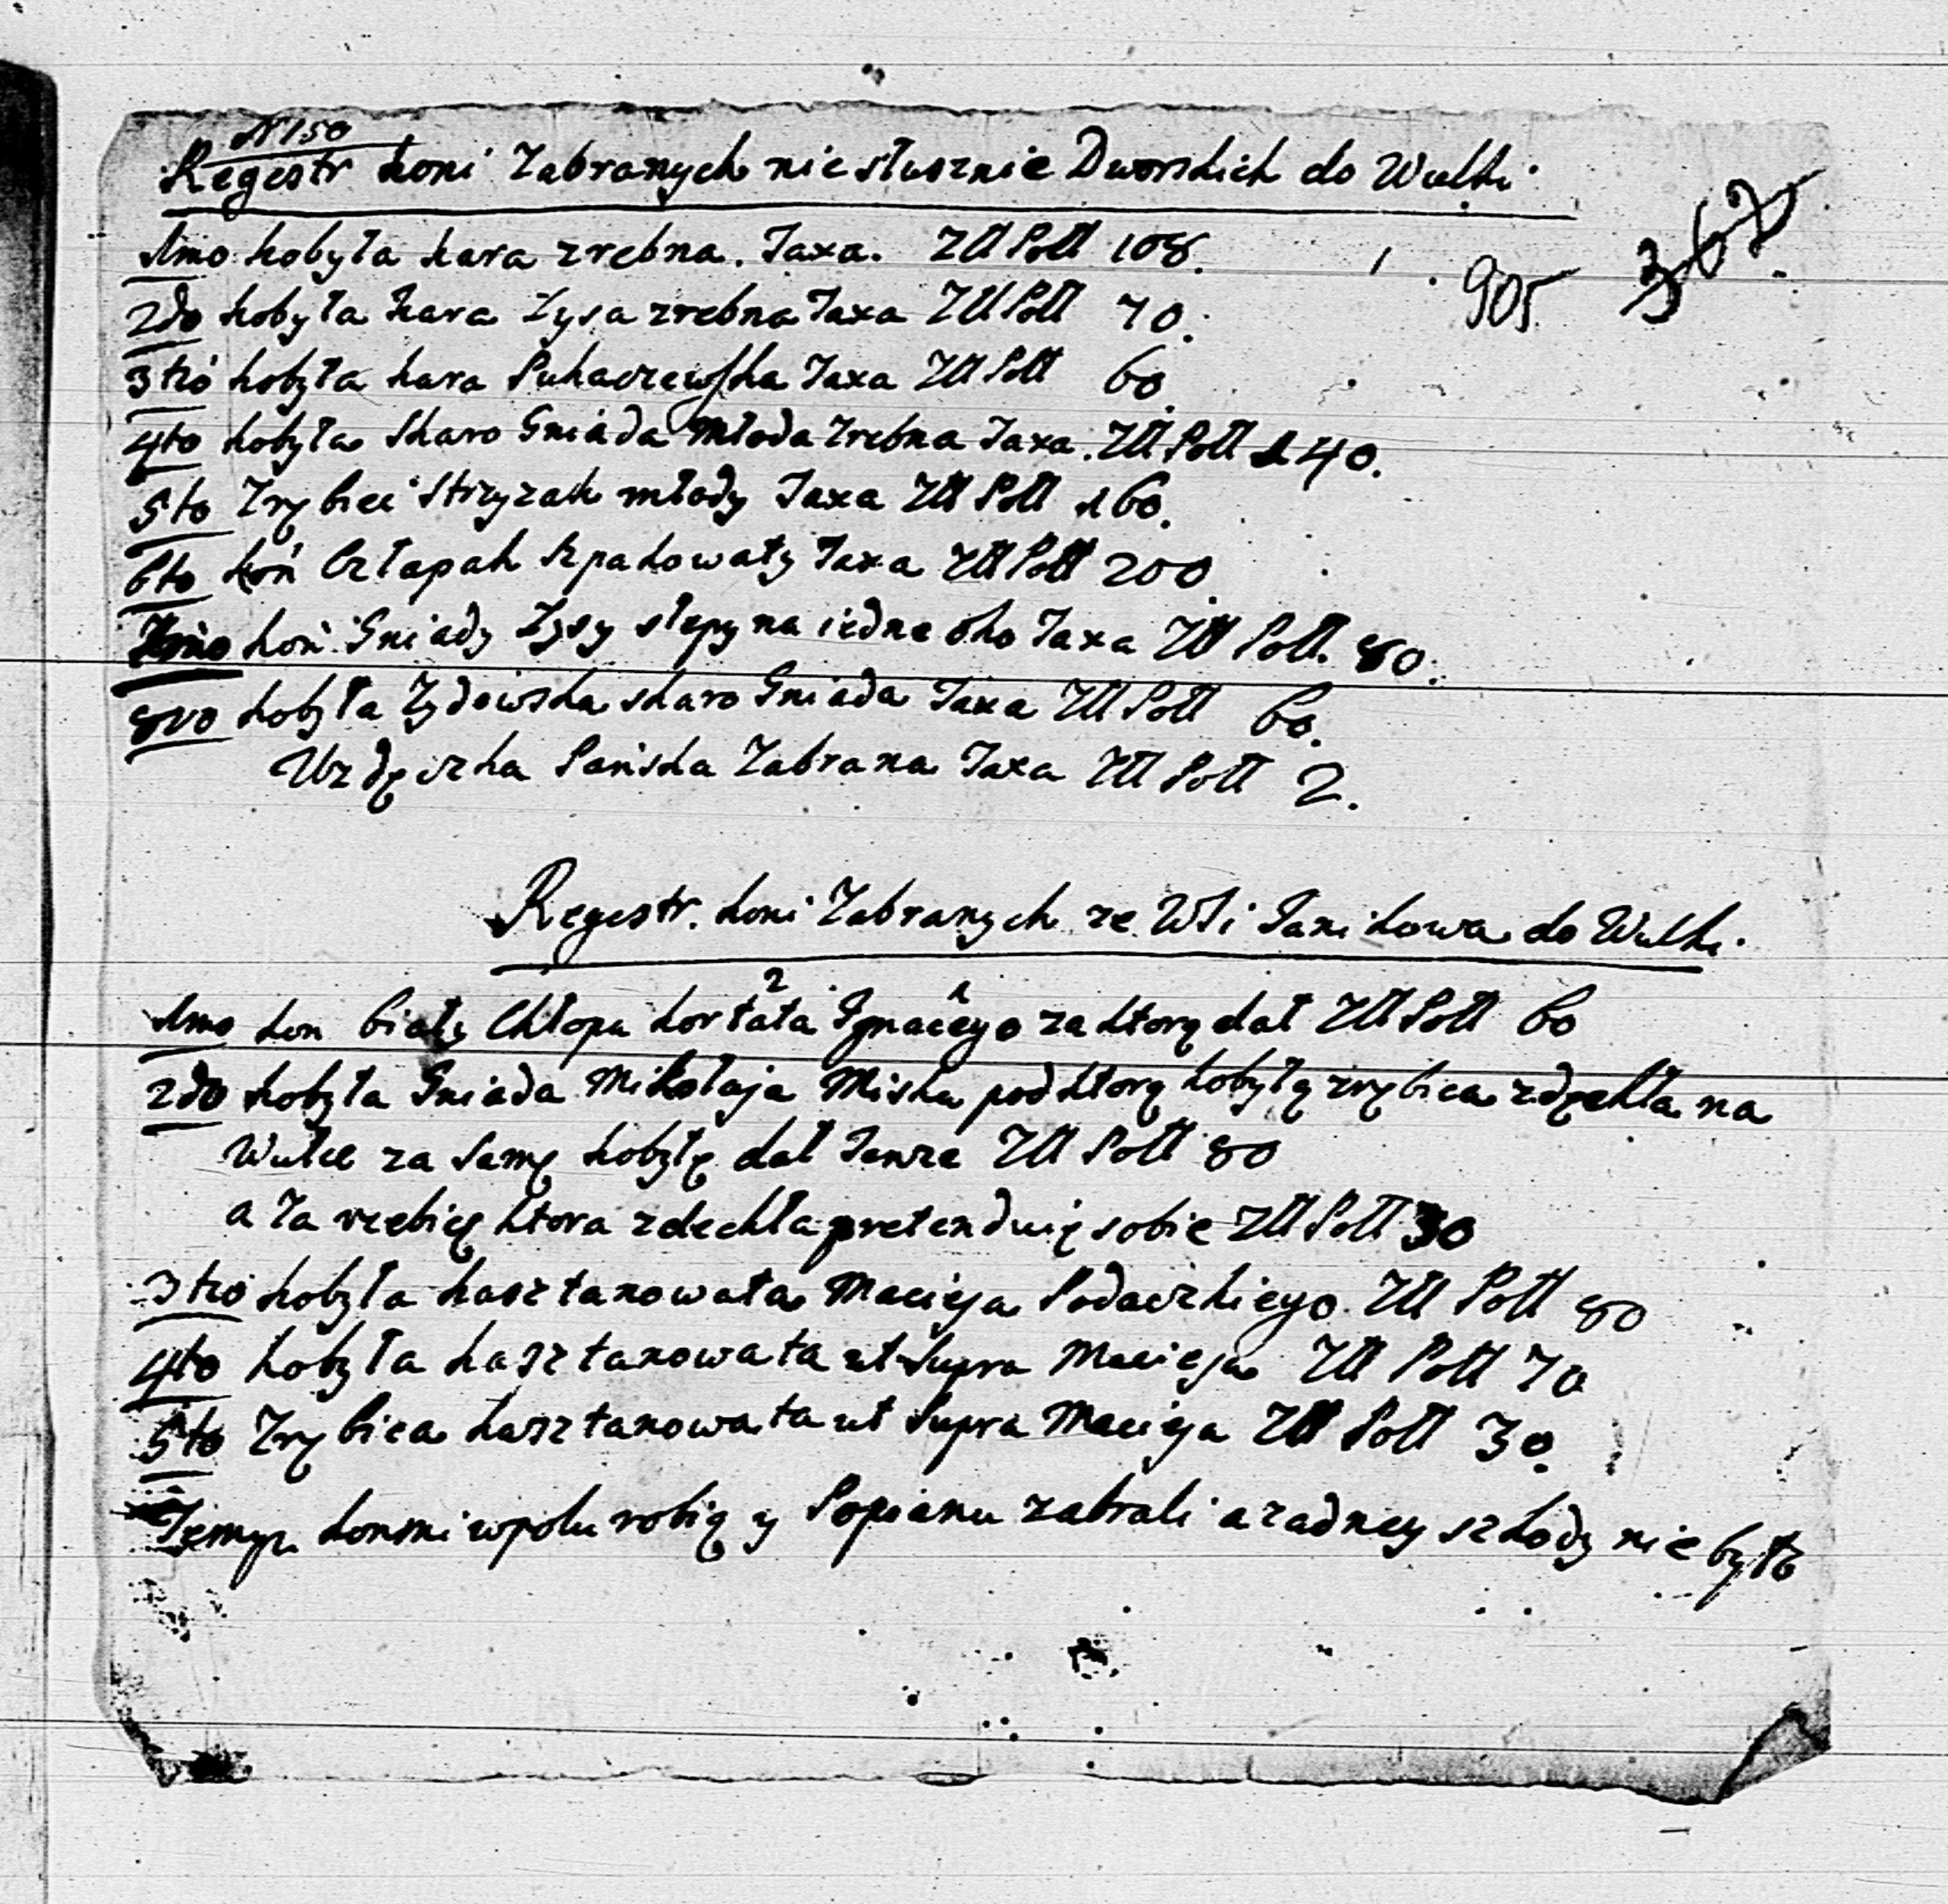 N 150
Regestr koni Zabranych niesłusznie Dworskich do Wulki.
1mo kobyła kara zrebna. Taxa. Zll Poll 108.
905
367
2do kobyła kara Łysa zrebna Taxa Zll Poll 70.
3tio kobyła kara Puhaczewska Taxa Zll Poll 60
4to kobyła Skaro Gniada młoda Zrebna Taxa. Zll Poll 140.
5to Zrybiec Strzyzak młody Taxa Zll Poll 160.
6to koń Człapak Szpakowaty Taxa Zll Poll 200.
7mo koń Gniady Łysy slepy na iedne oko Taxa Zll Poll. 80.
8vo kobyła Zydowska skaro Gniada Taxa Zll Poll 60.
Uzdeczka Pańska Zabrana Taxa Zll Poll 2.
Regestr. koni Zabranych ze Wsi Janikowa do Wulki.
1mo kon biały Chłopa kortata 2 Ignacego 1 za ktorę dał Zll Poll 60
2do kobyła Gniada Mikołaja Miska pod ktorę kobyłę zrębica zdechła na
Wulce za Samę kobyłę dał Zll Poll 80
a Za rzebię ktora zdechła pretenduię sobie Zll Poll 30
3tio kobyła kasztanowata Macieja Zll Poll 80
4to kobyła kasztanowata ut Supra Macieja Zll Poll 70
5to Zrębica kasztanowata ut Supra Macieja Zll Poll 30.
konmi w polu robią y zabrali a zadney szkody nie było